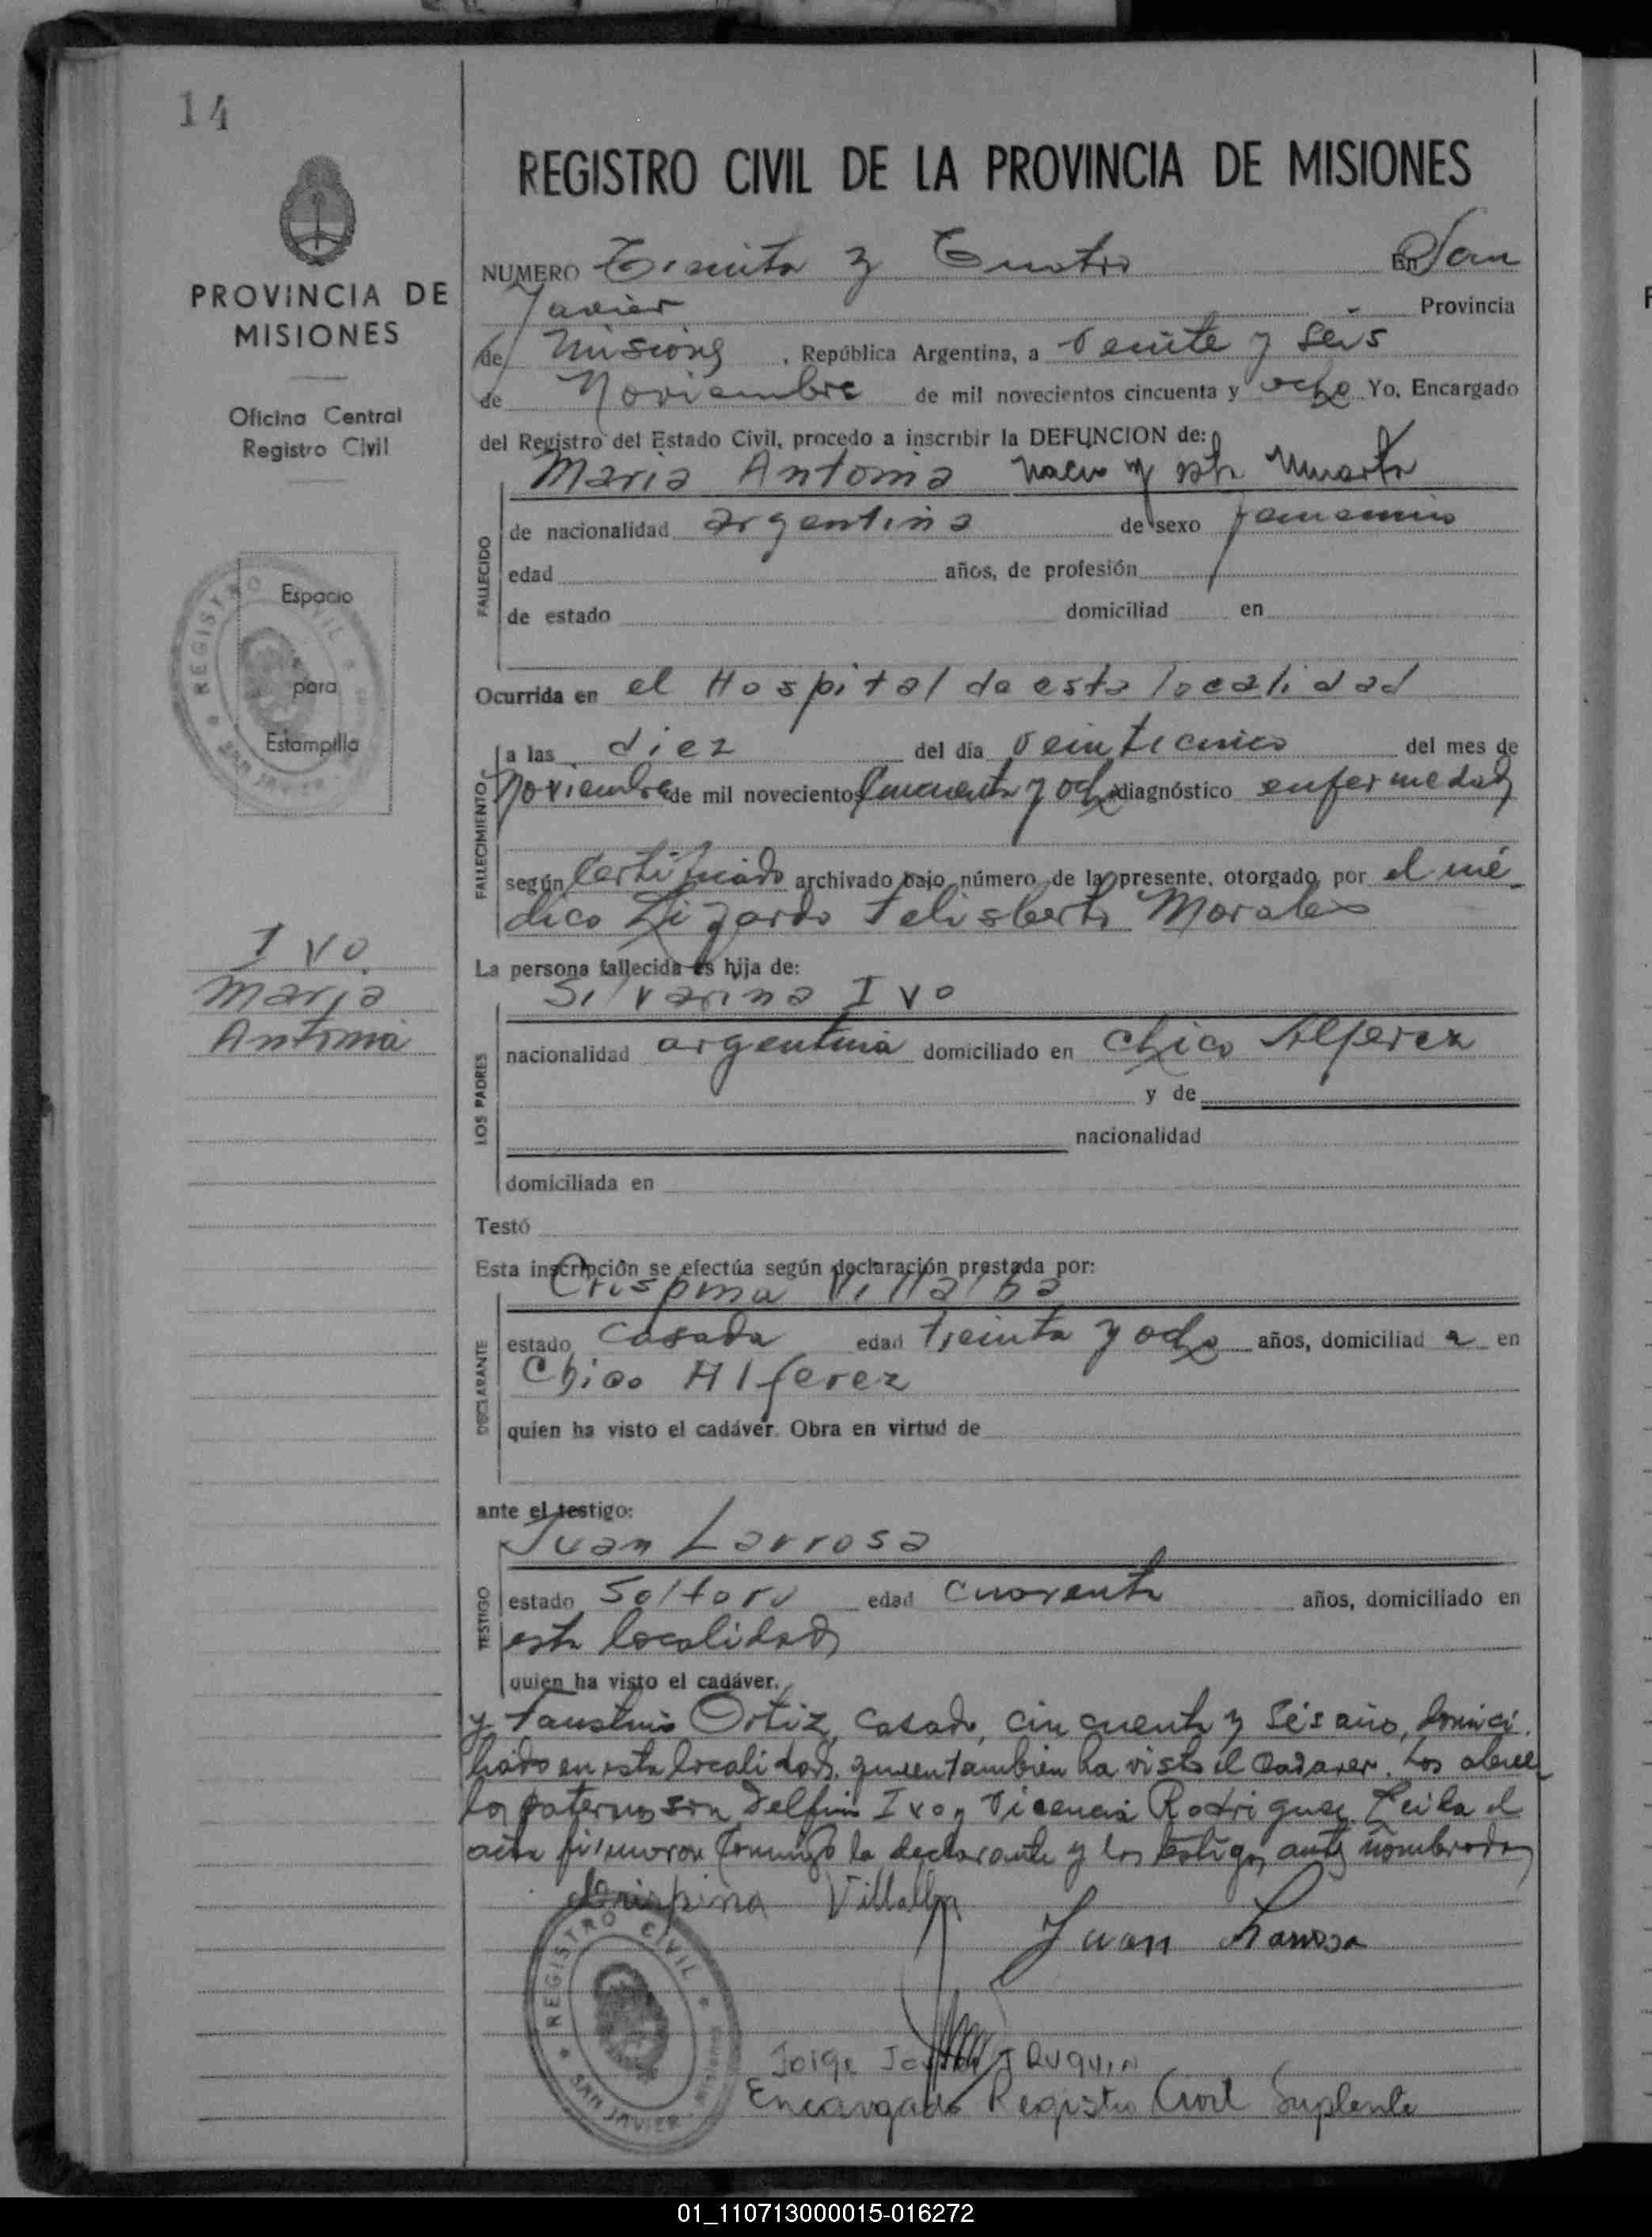 14
REGISTRO CIVIL DE LA PROVINCIA DE MISIONES
PROVINCIA DE
MISIONES
Oficina Central
Registro Civil
Espacio
para
Estampilla
REGISTRO CIVIL * SAN JAVIER
Ivo
Maria
Antonia
NUMERO Treinta y Cuatro En San
Javier Provincia
de Misiones, República Argentina, a veinte y seis
de Noviembre de mil novecientos cincuenta y ocho Yo, Encargado
del Registro del Estado Civil, procedo a inscribir la DEFUNCION de:
Maria Antonia nacio y esta muerta
FALLECIDO
de nacionalidad argentina de sexo femenino
edad años, de profesión
de estado domiciliad en
Ocurrida en el Hospital de esta localidad
FALLECIMIENTO
a las diez del día veinticinco del mes de
Noviembre de mil novecientos cincuenta y ocho diagnóstico enfermedad
según Certificado archivado bajo número de la presente, otorgado por el mé-
dico Lizardo Felisberto Morales
La persona fallecida es hija de:
Silvarina Ivo
LOS PADRES
nacionalidad argentina domiciliado en Chico Alferez
y de
nacionalidad
domiciliada en
Testó
Esta inscripción se efectúa según declaración prestada por:
Crispina Villalba
DECLARANTE
estado Casada edad treinta y ocho años, domiciliad a en
Chico Alferez
quien ha visto el cadáver. Obra en virtud de
ante el testigo:
Juan Larrosa
TESTIGO
estado Soltero edad cuarenta años, domiciliado en
esta localidad
quien ha visto el cadáver.
y Faustino Ortiz, casado, cincuenta y seis años, domici
liado en esta localidad, quien tambien ha visto el cadaver. Los abue
los paternos son Delfin Ivo y Vicencia Rodriguez Leida el
acta firmaron conmigo la declarante y los testigos antes nombrados
Crispina Villalba
Juan Larrosa
REGISTRO CIVIL * SAN JAVIER - Misiones
Jorge
Encargado Registro Civil Suplente
01_110713000015-016272